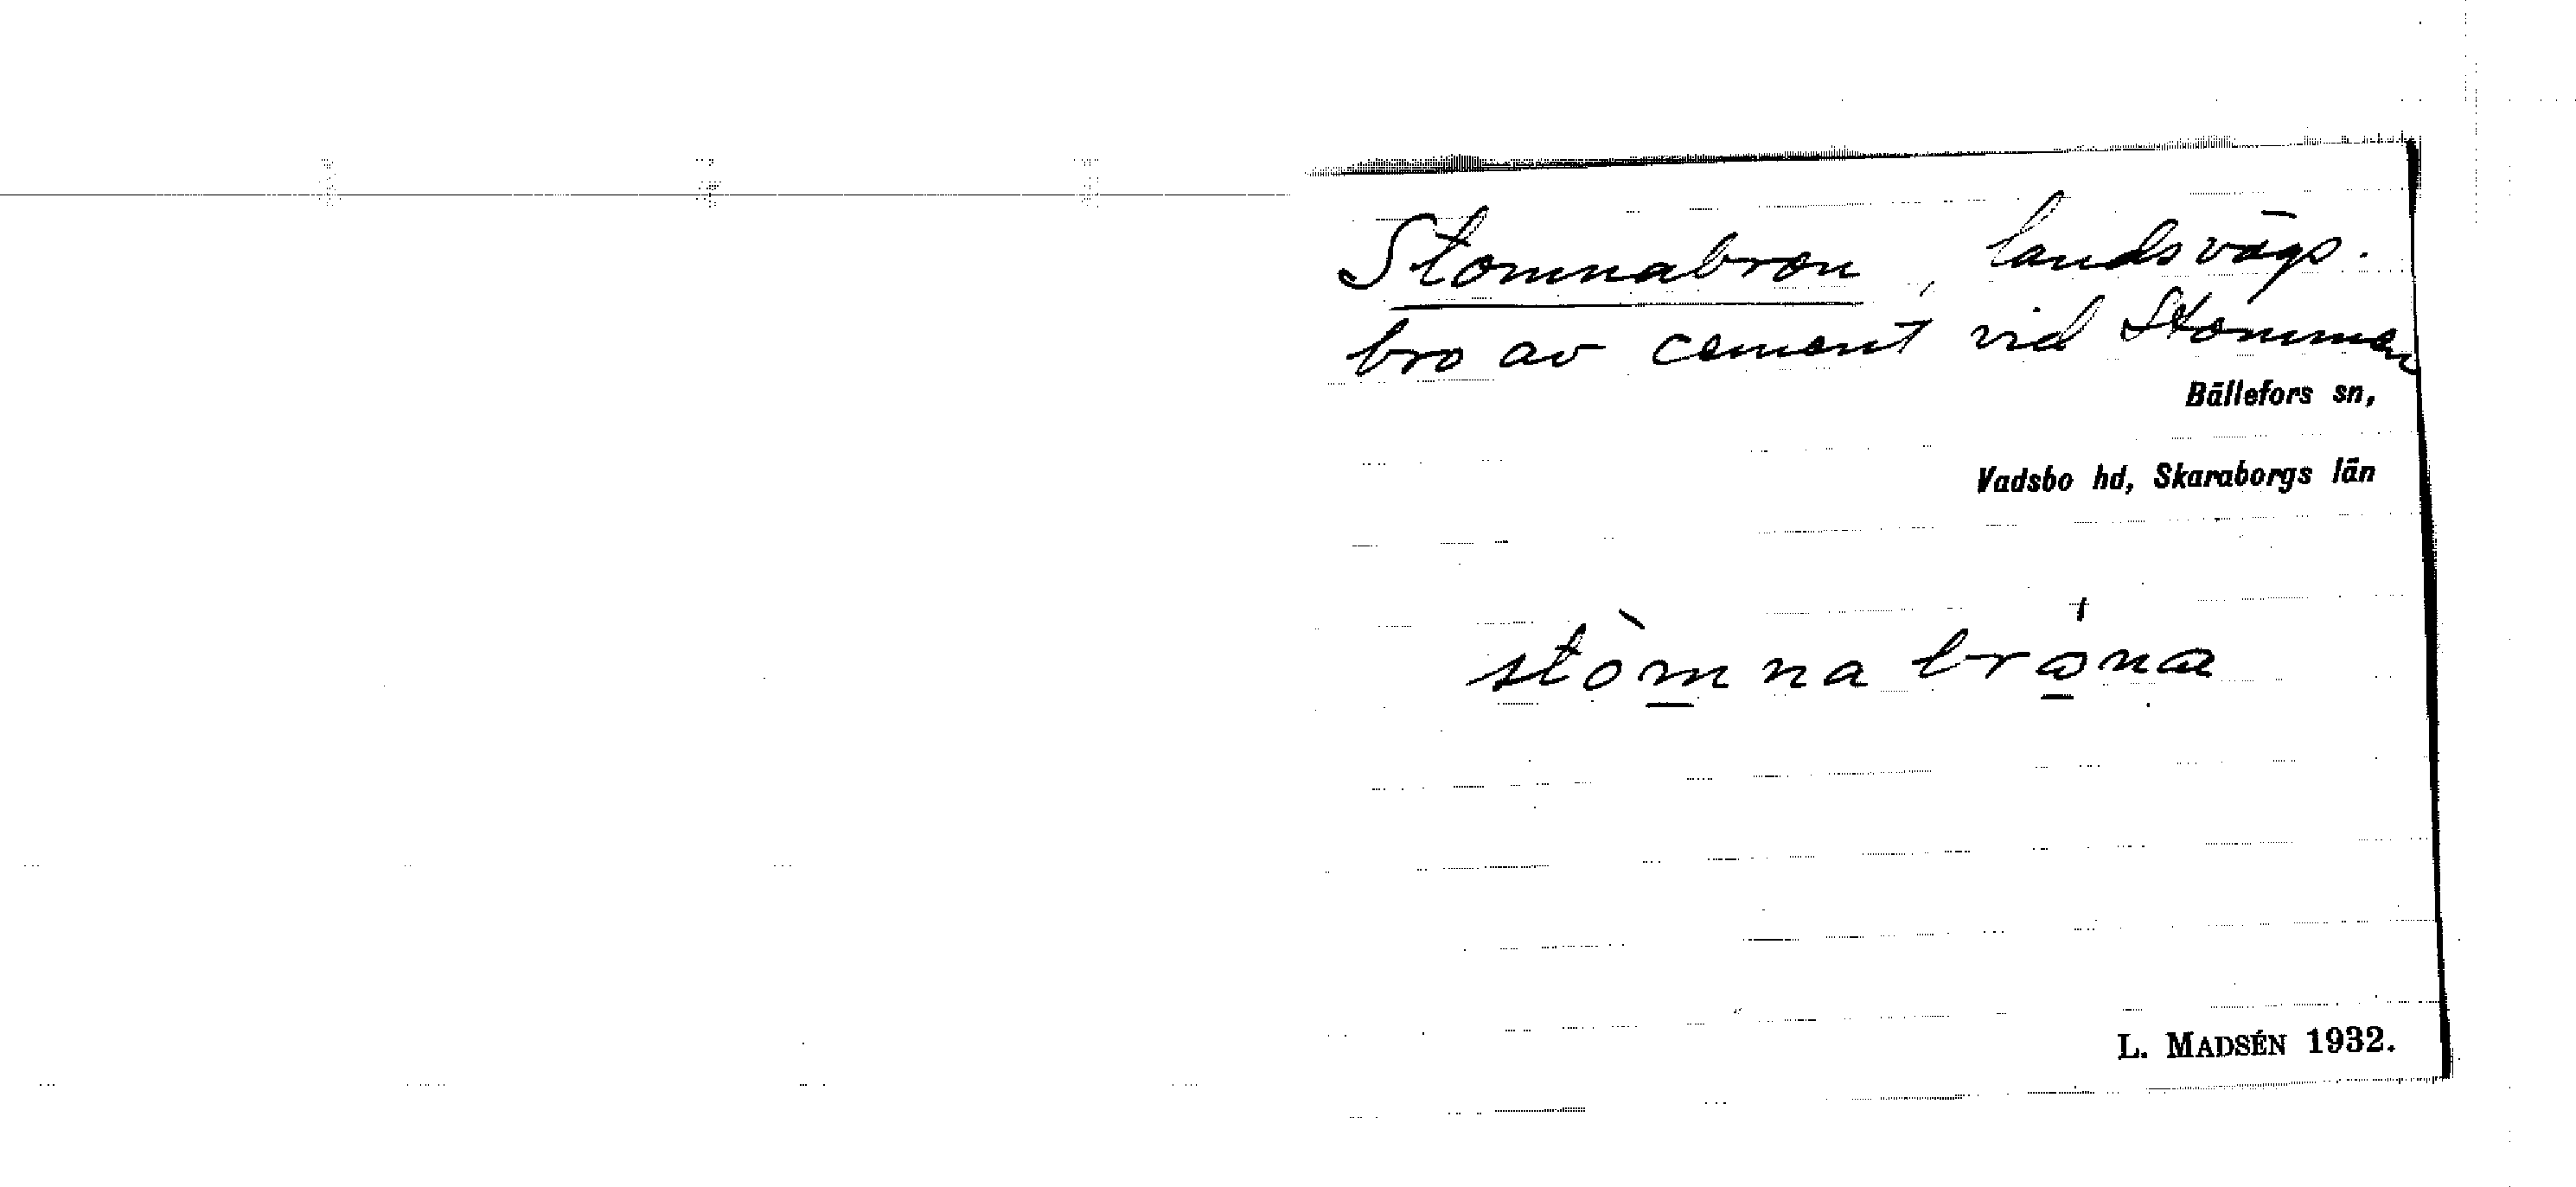 Stomnabron, landsvägs-
bro av cement vid Stommen
Bällefors sn,
Vadsbo hd, Skaraborgs län
stòmnabrona
L. MADSÉN 1932.